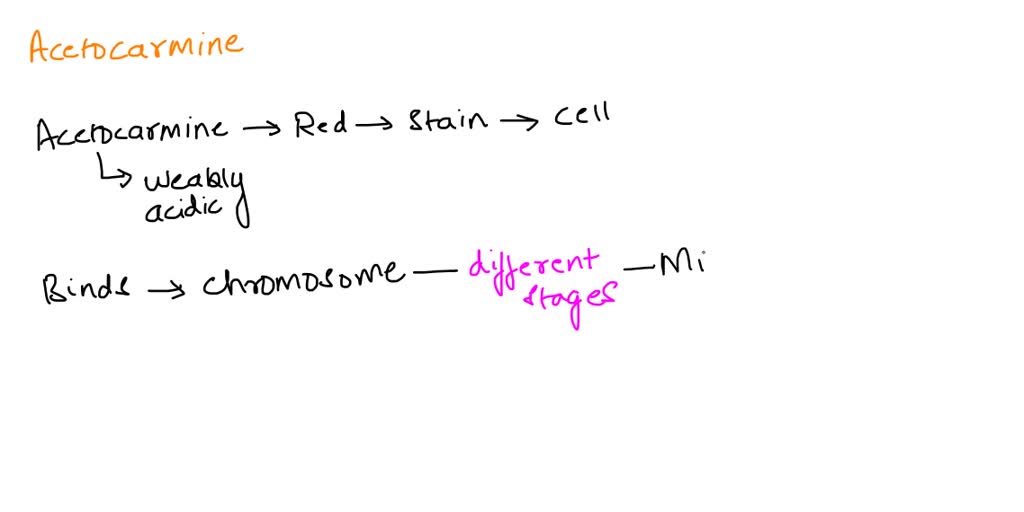 Acetocarmine
Acetocarmine → Red → Stain → cell
↳ weakly
acidic
Binds → chromosome — different — Mi
stages